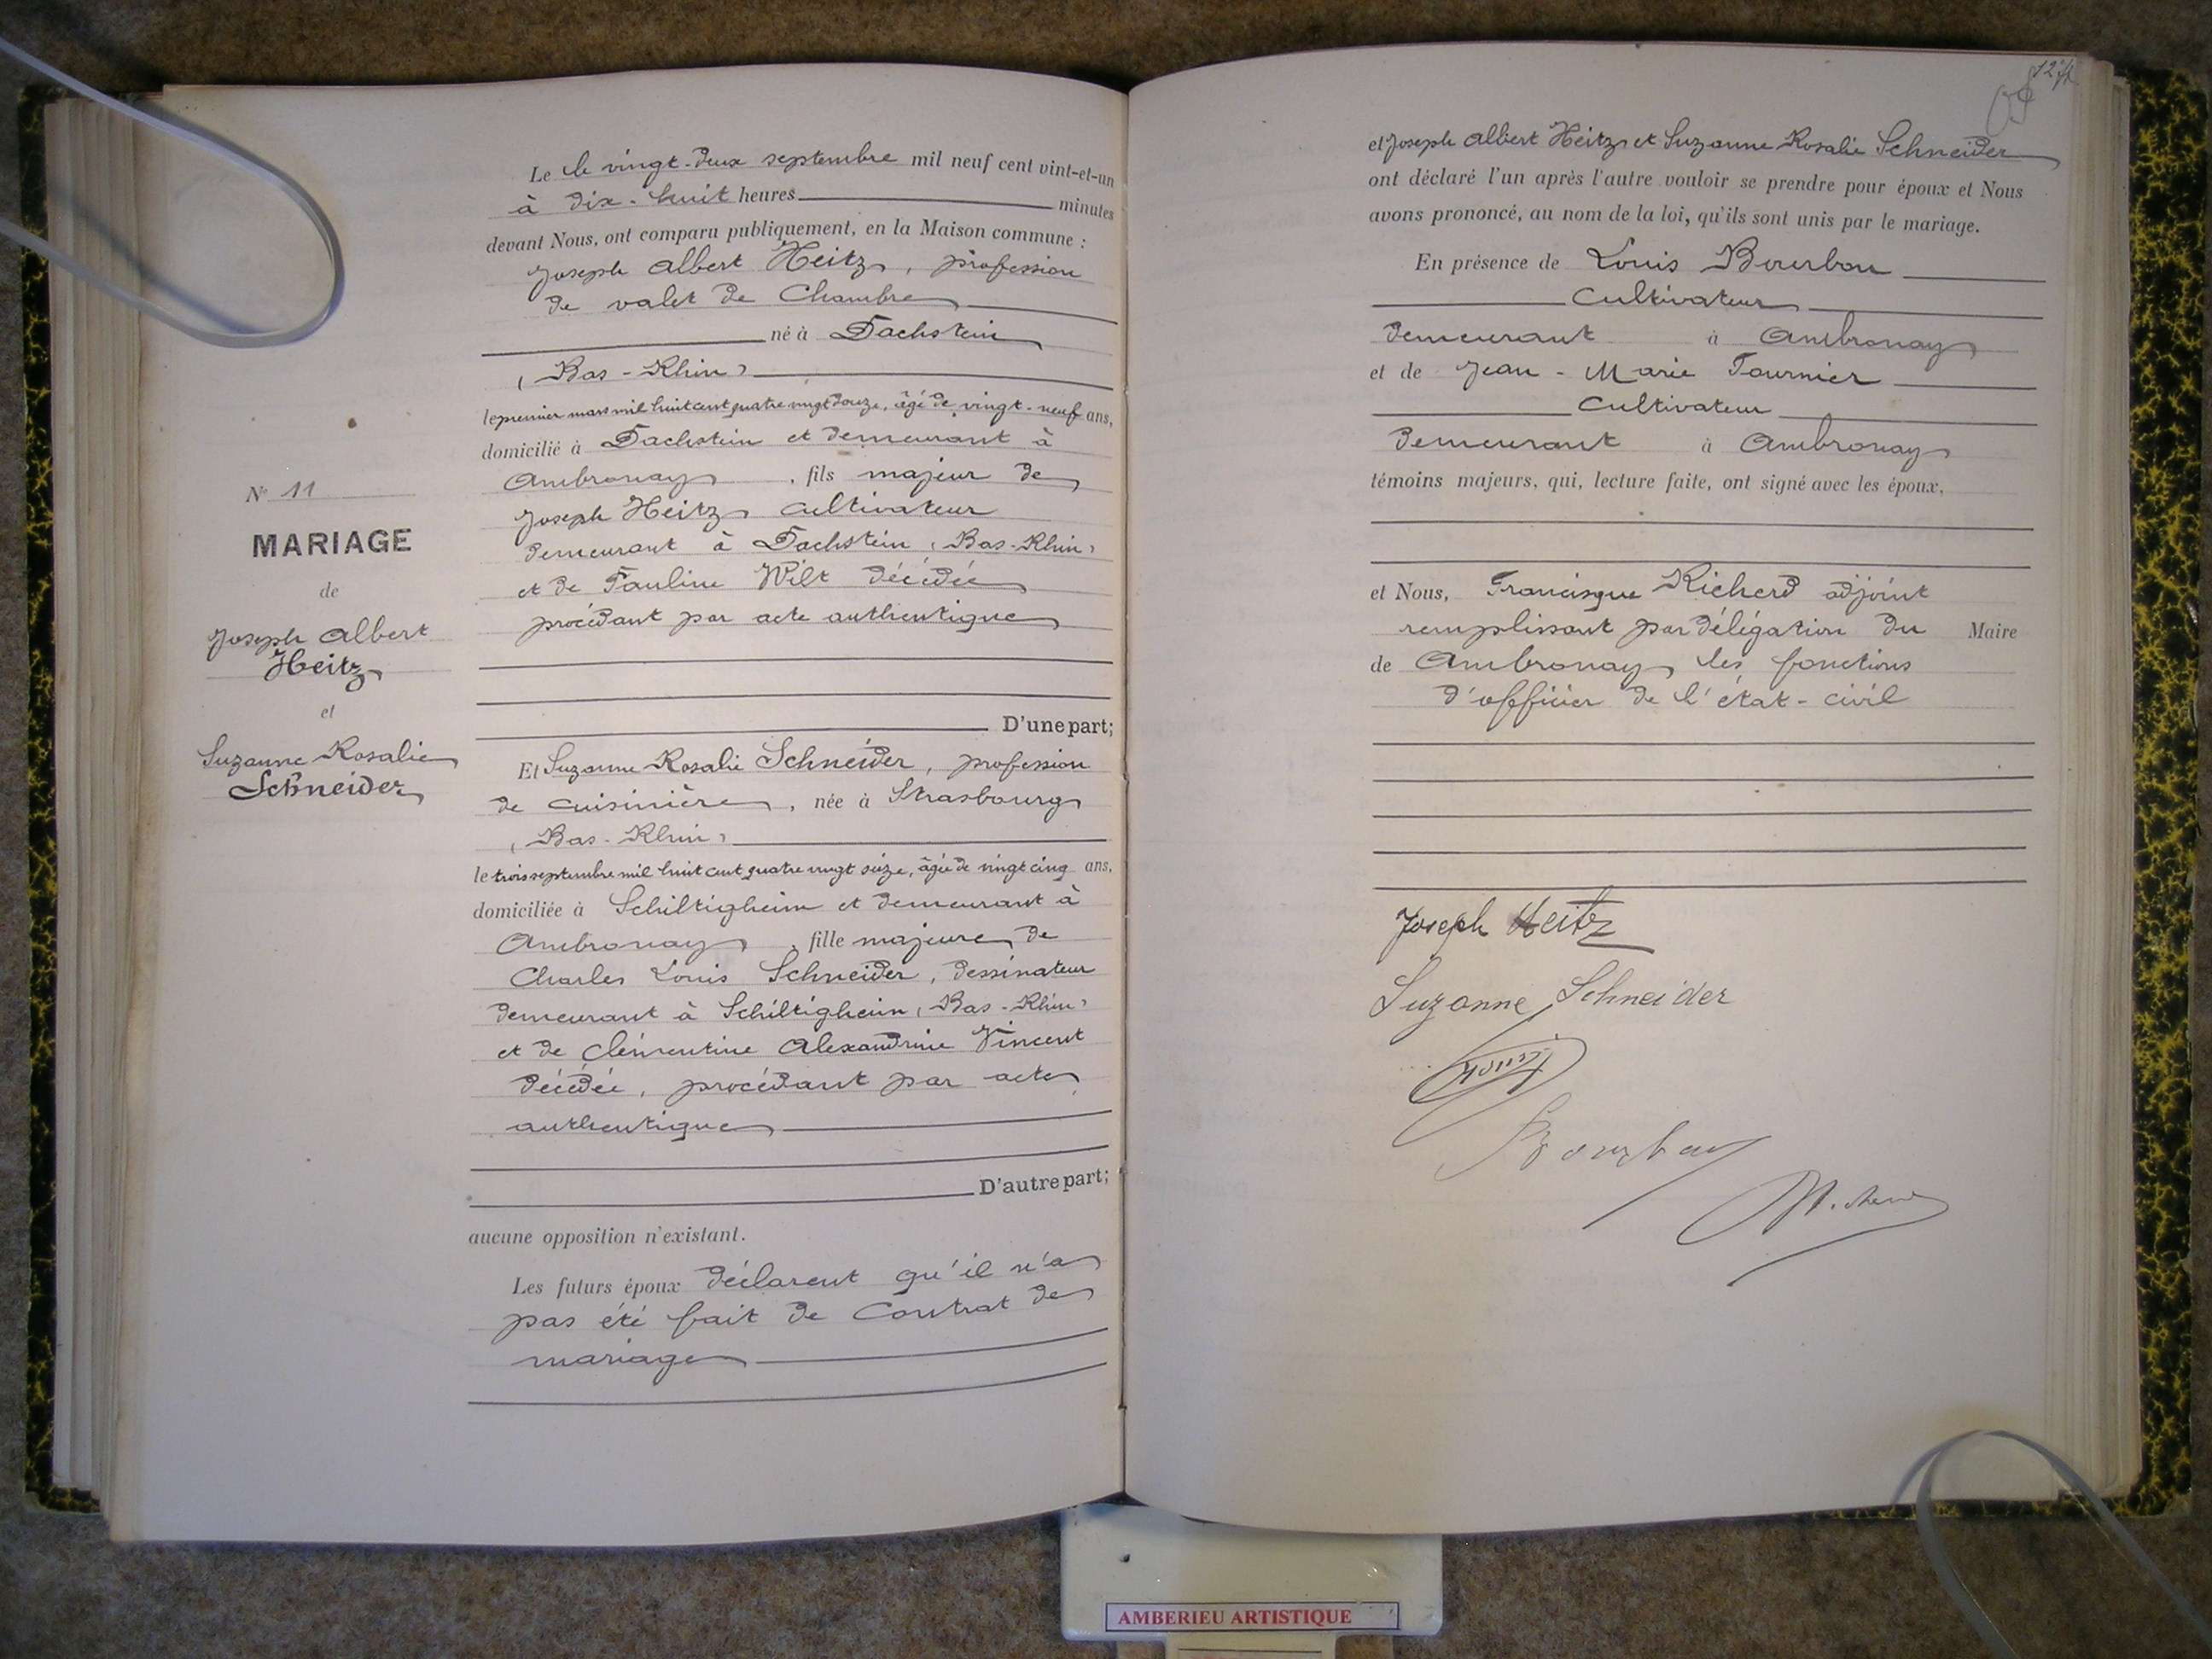 N° 11
MARIAGE
de
Joseph Albert
Heitz
et
Suzanne Rosalie
Schneider
Le le vingt-deux septembre mil neuf cent vint-et-un
à dix-huit heures minutes
devant Nous, ont comparu publiquement, en la Maison commune :
Joseph Albert Heitz, profession
de valet de Chambre
né à Dachstein
(Bas-Rhin)
le premier mars mil huit cent quatre vingt douze, âgé de vingt-neuf ans,
domicilié à Dachstein et demeurant à
Ambronay, fils majeur de
Joseph Heitz cultivateur
demeurant à Dachstein (Bas-Rhin)
et de Pauline Wilt décédée
procédant par acte authentique
D'une part;
Et Suzanne Rosalie Schneider, profession
de cuisinière, née à Strasbourg
(Bas-Rhin)
le trois septembre mil huit cent quatre vingt seize, âgée de vingt cinq ans,
domiciliée à Schiltigheim et demeurant à
Ambronay, fille majeure de
Charles Louis Schneider, dessinateur
demeurant à Schiltigheim (Bas-Rhin)
et de Clémentine Alexandrine Vincent
décédée, procédant par acte
authentique
D'autre part;
aucune opposition n'existant.
Les futurs époux déclarent qu'il n'a
pas été fait de Contrat de
mariage
et Joseph Albert Heitz et Suzanne Rosalie Schneider
ont déclaré l'un après l'autre vouloir se prendre pour époux et Nous
avons prononcé, au nom de la loi, qu'ils sont unis par le mariage.
En présence de Louis Bourbon
Cultivateur
demeurant à Ambronay
et de Jean-Marie Tournier
Cultivateur
demeurant à Ambronay
témoins majeurs, qui, lecture faite, ont signé avec les époux,
et Nous, Francisque Richerd adjoint
remplissant par délégation du Maire
de Ambronay les fonctions
d'officier de l'état-civil
Joseph Heitz
Suzanne Schneider
Bourbon
AMBERIEU ARTISTIQUE